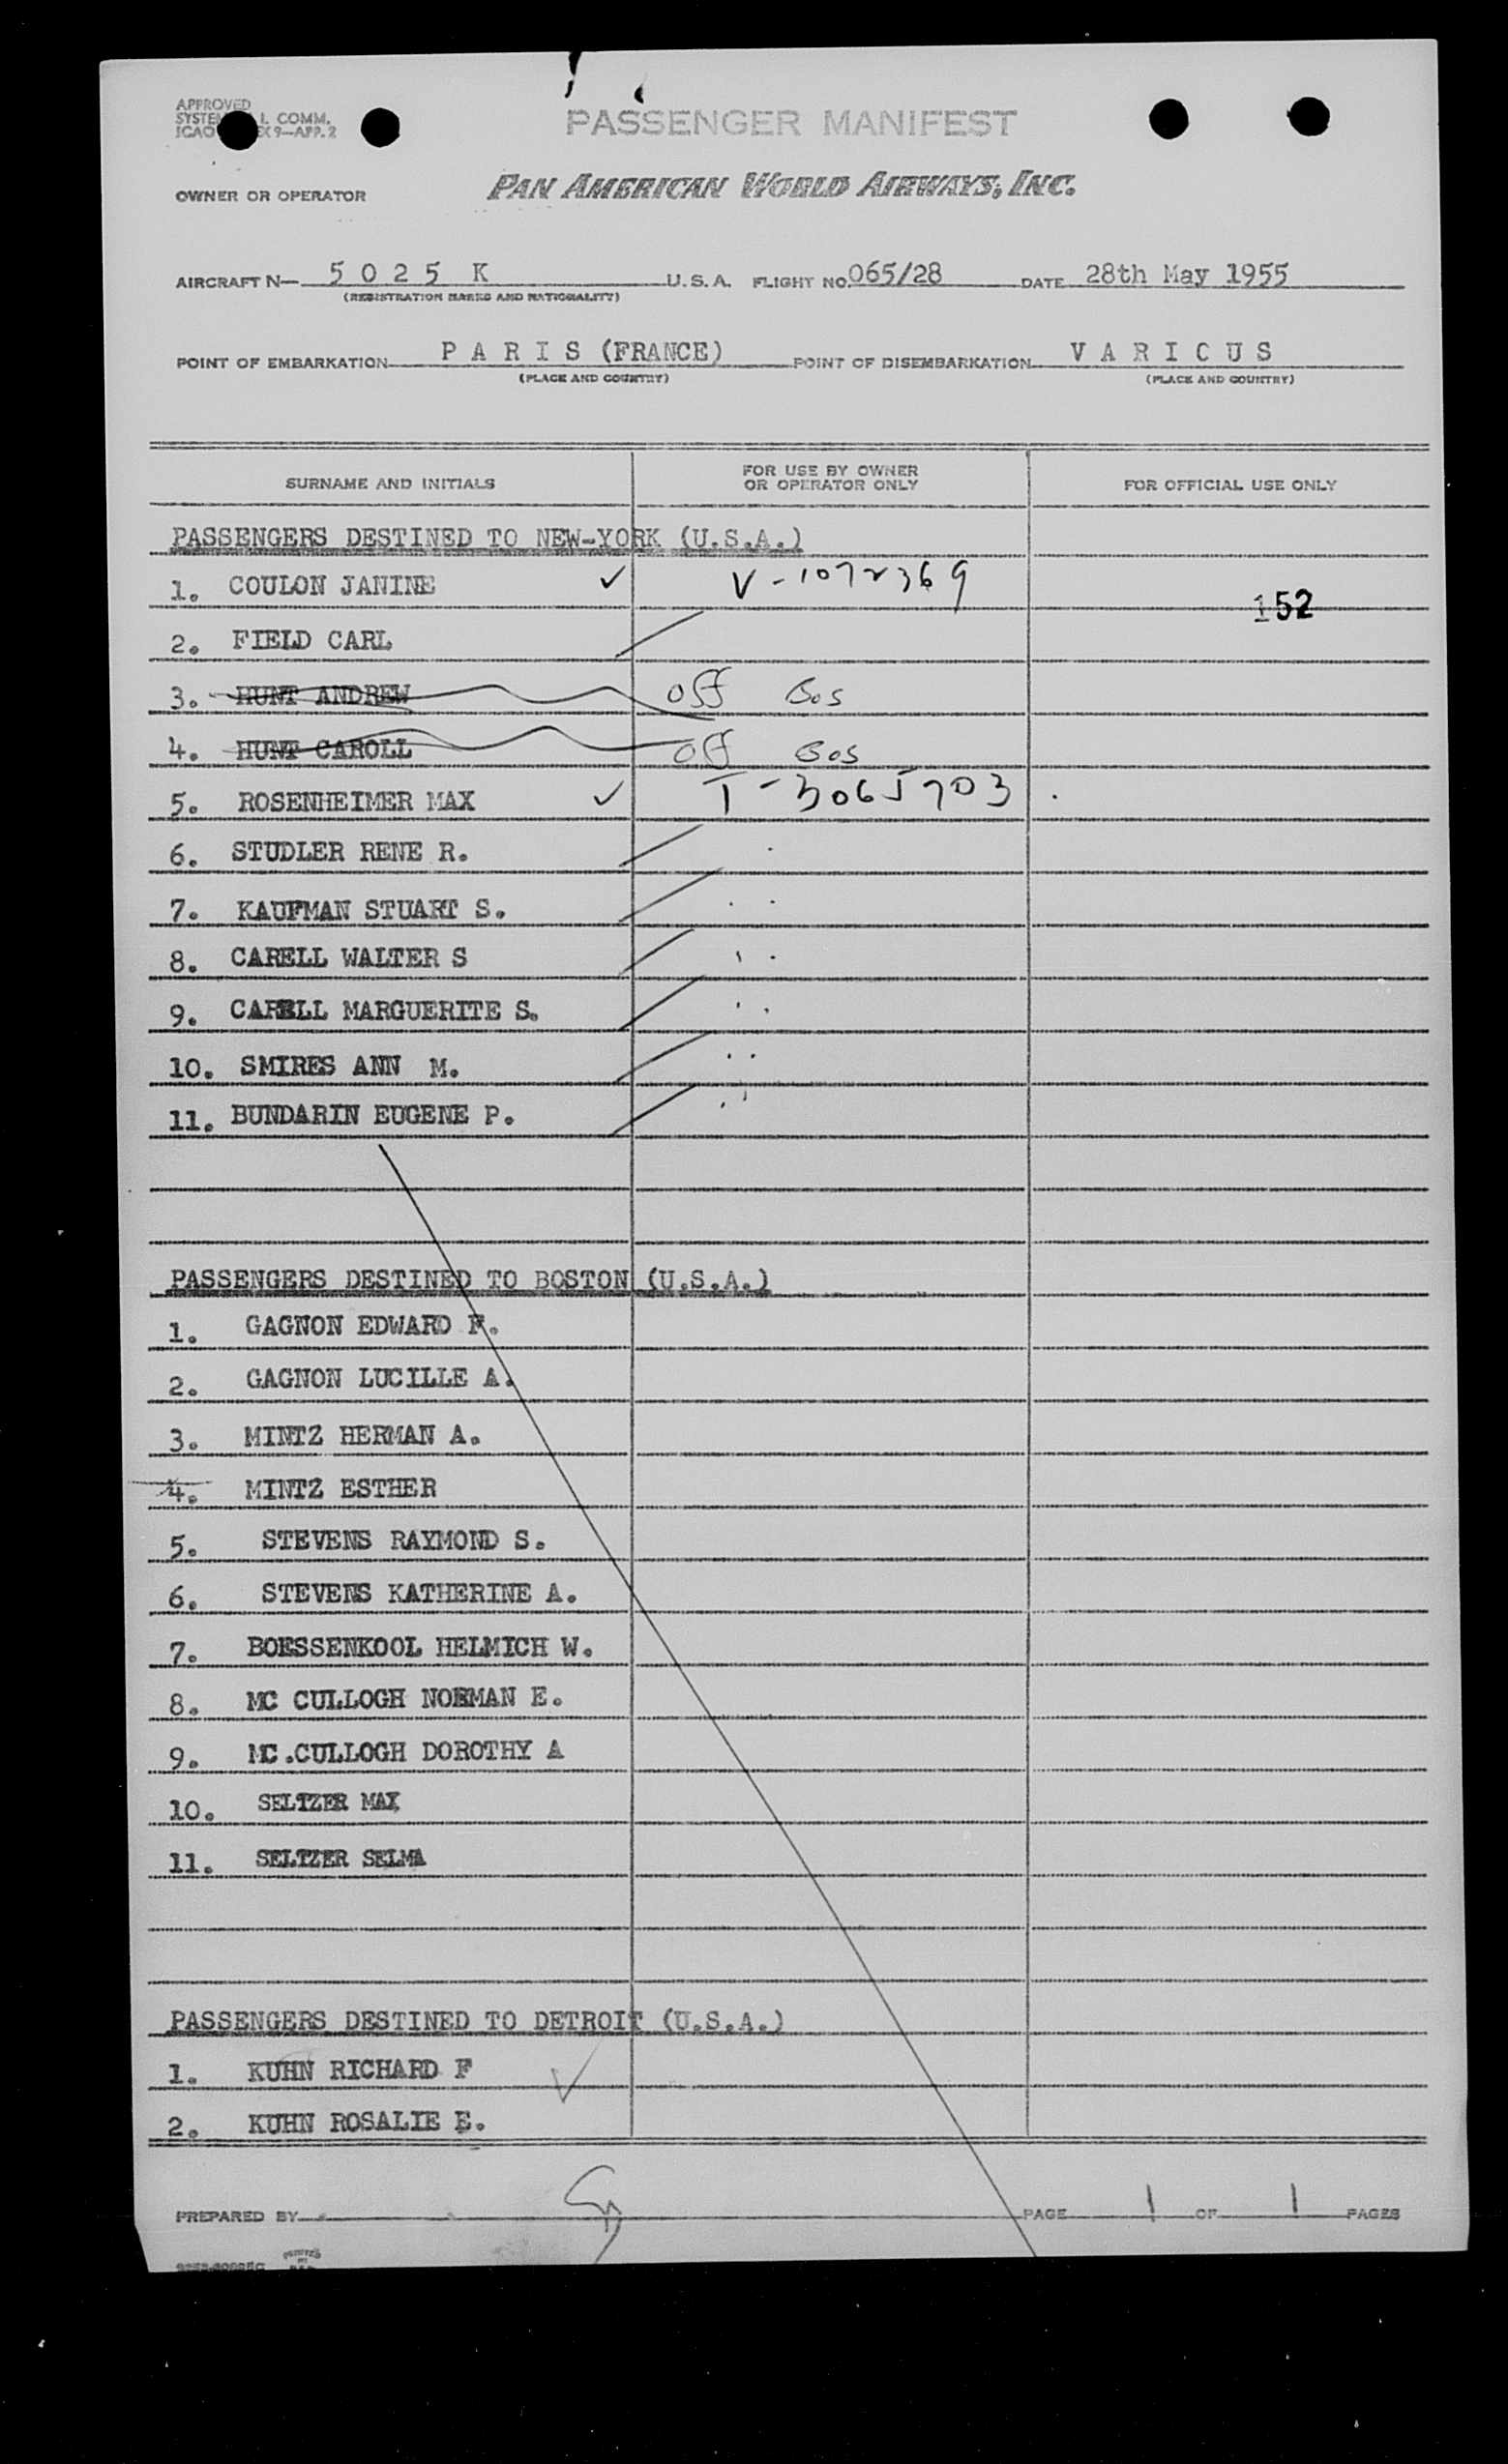 APPROVED
SYSTEM I. COMM.
ICAO EX 9—APP. 2
PASSENGER MANIFEST
OWNER OR OPERATOR PAN AMERICAN WORLD AIRWAYS, INC.
AIRCRAFT N— 5 0 2 5 K U. S. A. FLIGHT NO. 065/28 DATE 28th May 1955
(REGISTRATION MARKS AND NATIONALITY)
POINT OF EMBARKATION P A R I S (FRANCE) POINT OF DISEMBARKATION V A R I C U S
(PLACE AND COUNTRY) (PLACE AND COUNTRY)
SURNAME AND INITIALS FOR USE BY OWNER OR OPERATOR ONLY FOR OFFICIAL USE ONLY
PASSENGERS DESTINED TO NEW-YORK (U.S.A.)
1. COULON JANINE ✓ V-1072369
152
2. FIELD CARL
3. HUNT ANDREW off Bos
4. HUNT CAROLL off Bos
5. ROSENHEIMER MAX ✓ T-3065703
6. STUDLER RENE R.
7. KAUFMAN STUART S.
8. CARELL WALTER S
9. CARELL MARGUERITE S.
10. SMIRES ANN M.
11. BUNDARIN EUGENE P.
PASSENGERS DESTINED TO BOSTON (U.S.A.)
1. GAGNON EDWARD F.
2. GAGNON LUCILLE A.
3. MINTZ HERMAN A.
4. MINTZ ESTHER
5. STEVENS RAYMOND S.
6. STEVENS KATHERINE A.
7. BOESSENKOOL HELMICH W.
8. MC CULLOGH NORMAN E.
9. MC.CULLOGH DOROTHY A
10. SELTZER MAX
11. SELTZER SELMA
PASSENGERS DESTINED TO DETROIT (U.S.A.)
1. KUHN RICHARD F ✓
2. KUHN ROSALIE E.
PREPARED BY PAGE 1 OF 1 PAGES